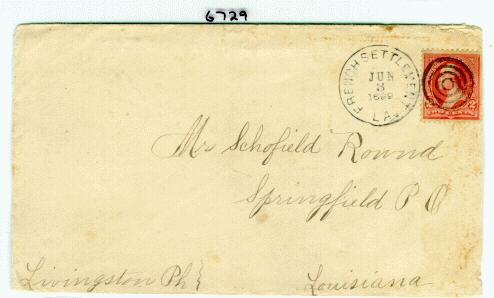 6729
FRENCH SETTLEMENT
JUN
3
1899
LA.
2 2
Mr Schofield Round
Springfield P O
Livingston Ph
Louisiana